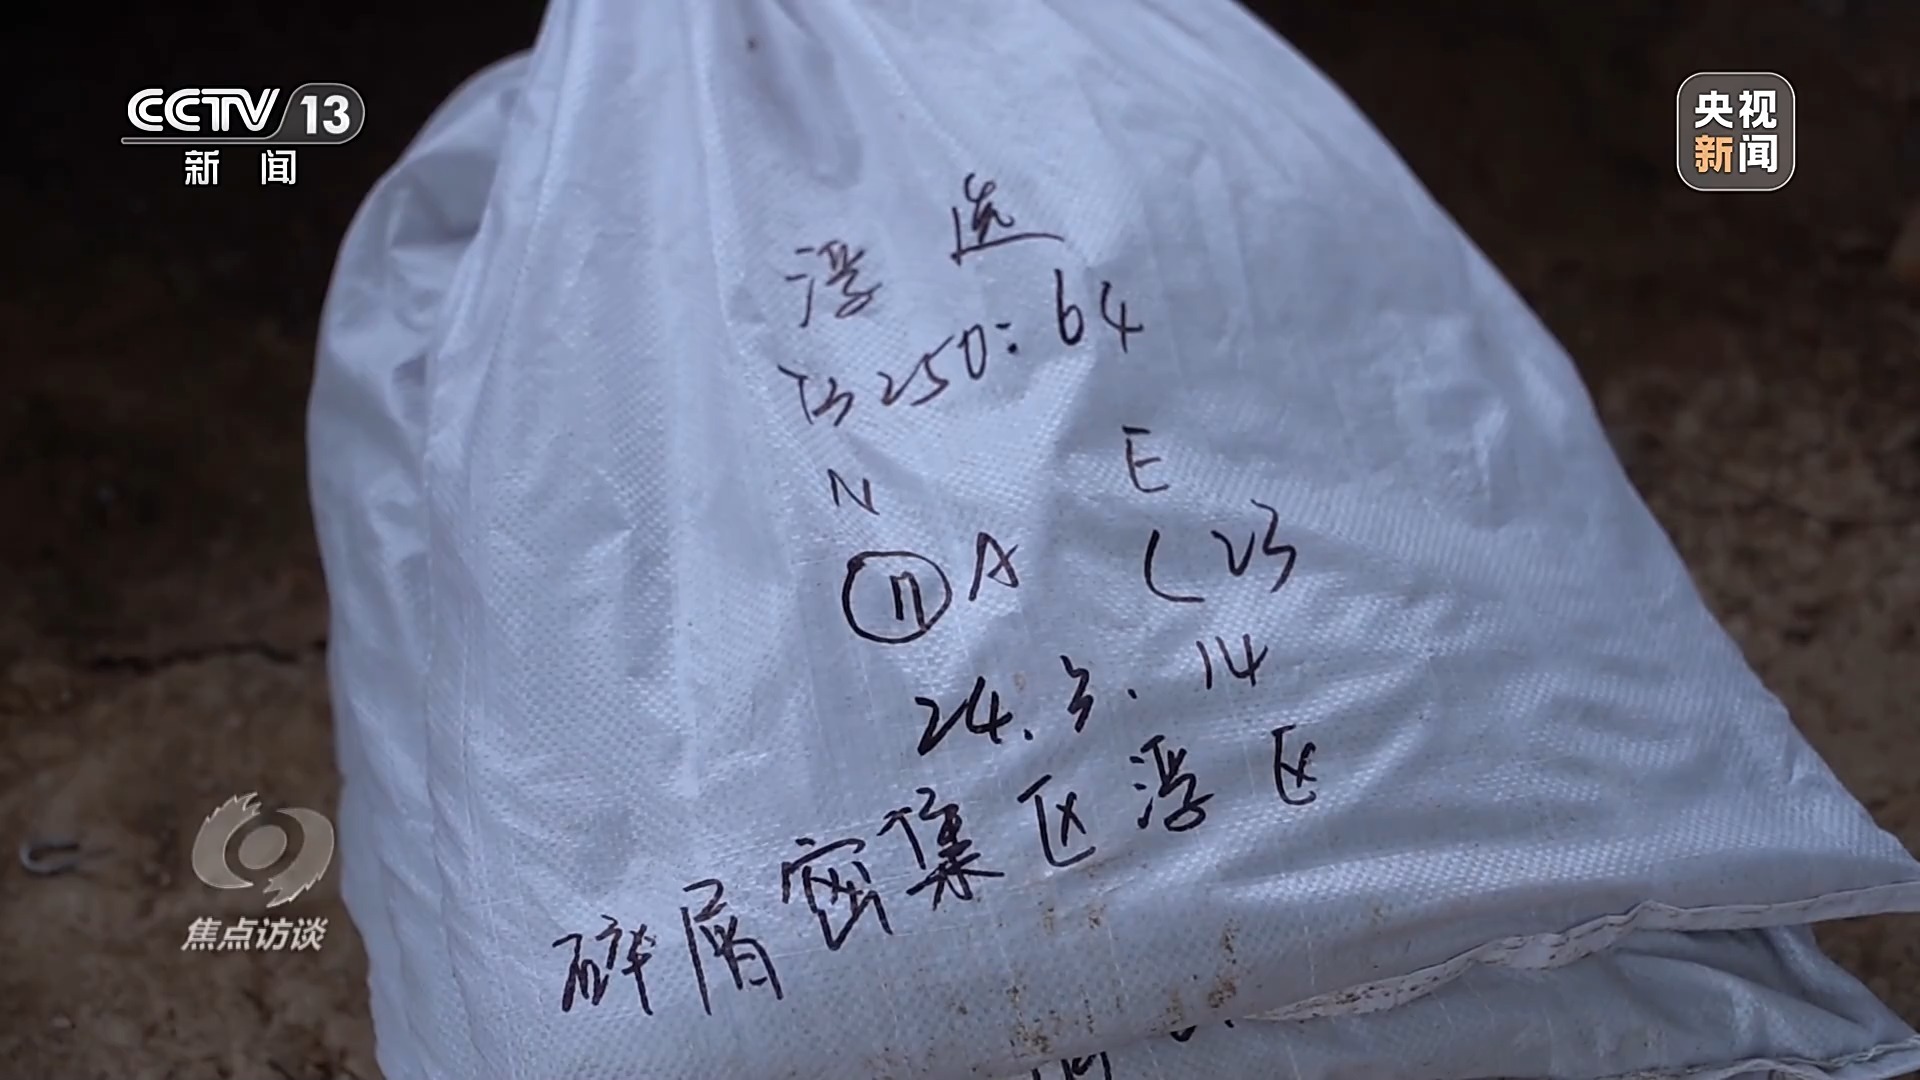 CCTV 13
新闻
央视
新闻
浮选
T3250:64
N E
⑪A L23
24.3.14
碎屑密集区浮区
焦点访谈